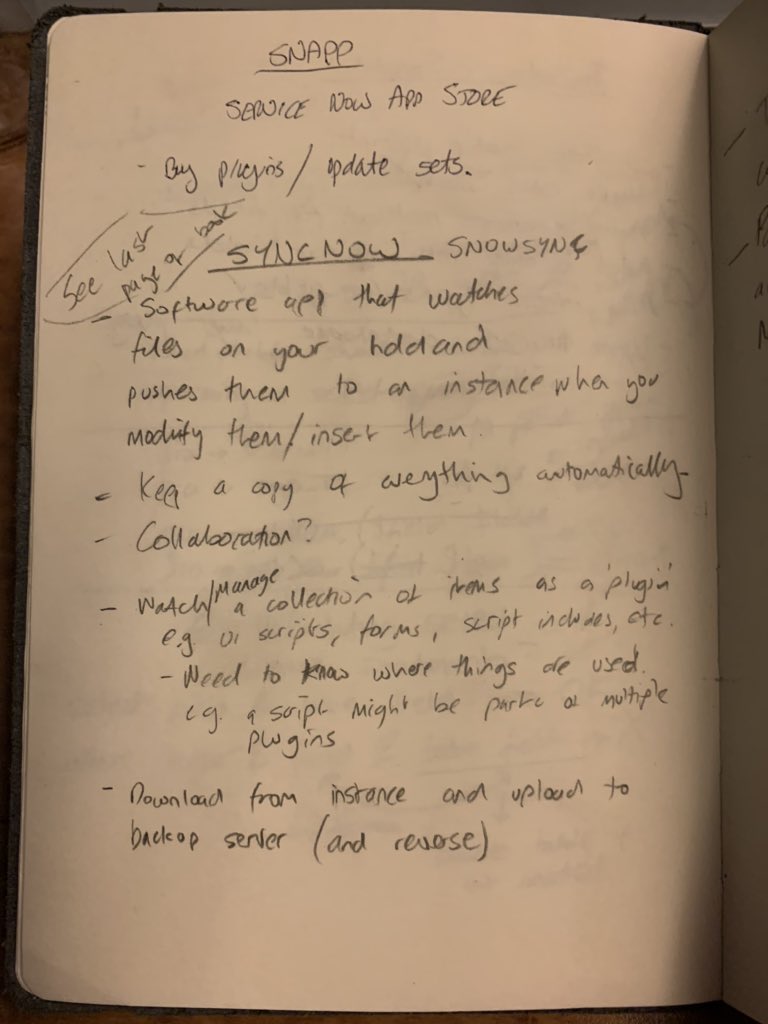 SNAPP
SERVICE NOW APP STORE
- Buy plugins / update sets.
See last
page of book
SYNCNOW SNOWSYNC
- Software app that watches
files on your hdd and
pushes them to an instance when you
modify them/insert them.
- Keep a copy of everything automatically
- Collaboration?
- Watch/Manage a collection of items as a 'plugin'
e.g. UI scripts, forms, script includes, etc.
- Need to know where things are used.
e.g. a script might be part of multiple
plugins
- Download from instance and upload to
backup server (and reverse)